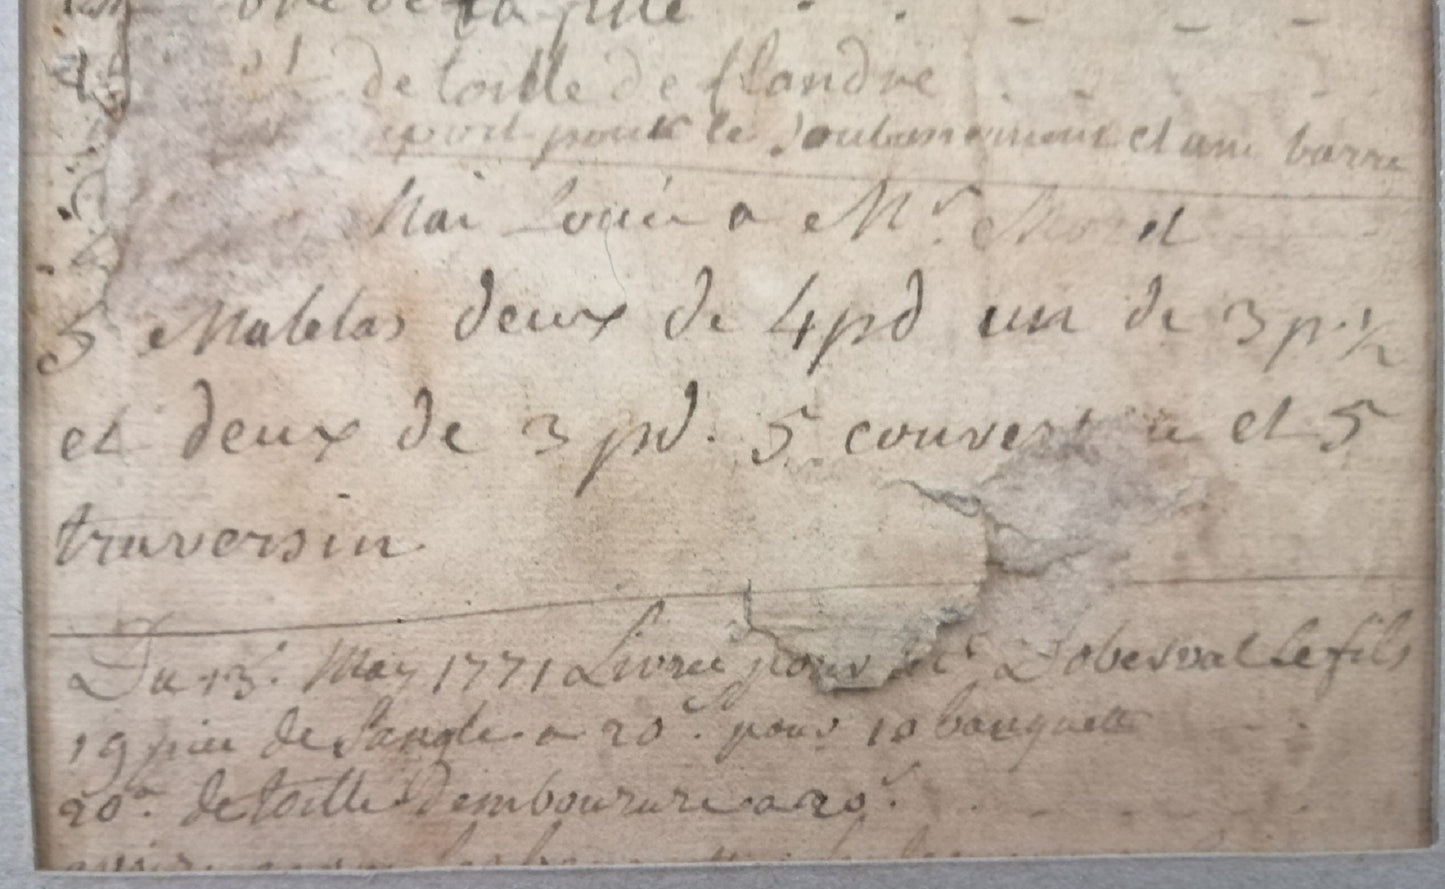 de la fille
de toille de flandre
pour le et une barre
Mai Louée a Mr. Morel
5 Matelas deux de 4 pd un de 3 p. 1/2
et deux de 3 pd. 5 et 5
traversin
Du 13. May 1771 Livrée pour Mr Dobesval le fils
19 piée de Sangle a 20s. pour 10 banquette
20a. de toille dembourure a 20s.